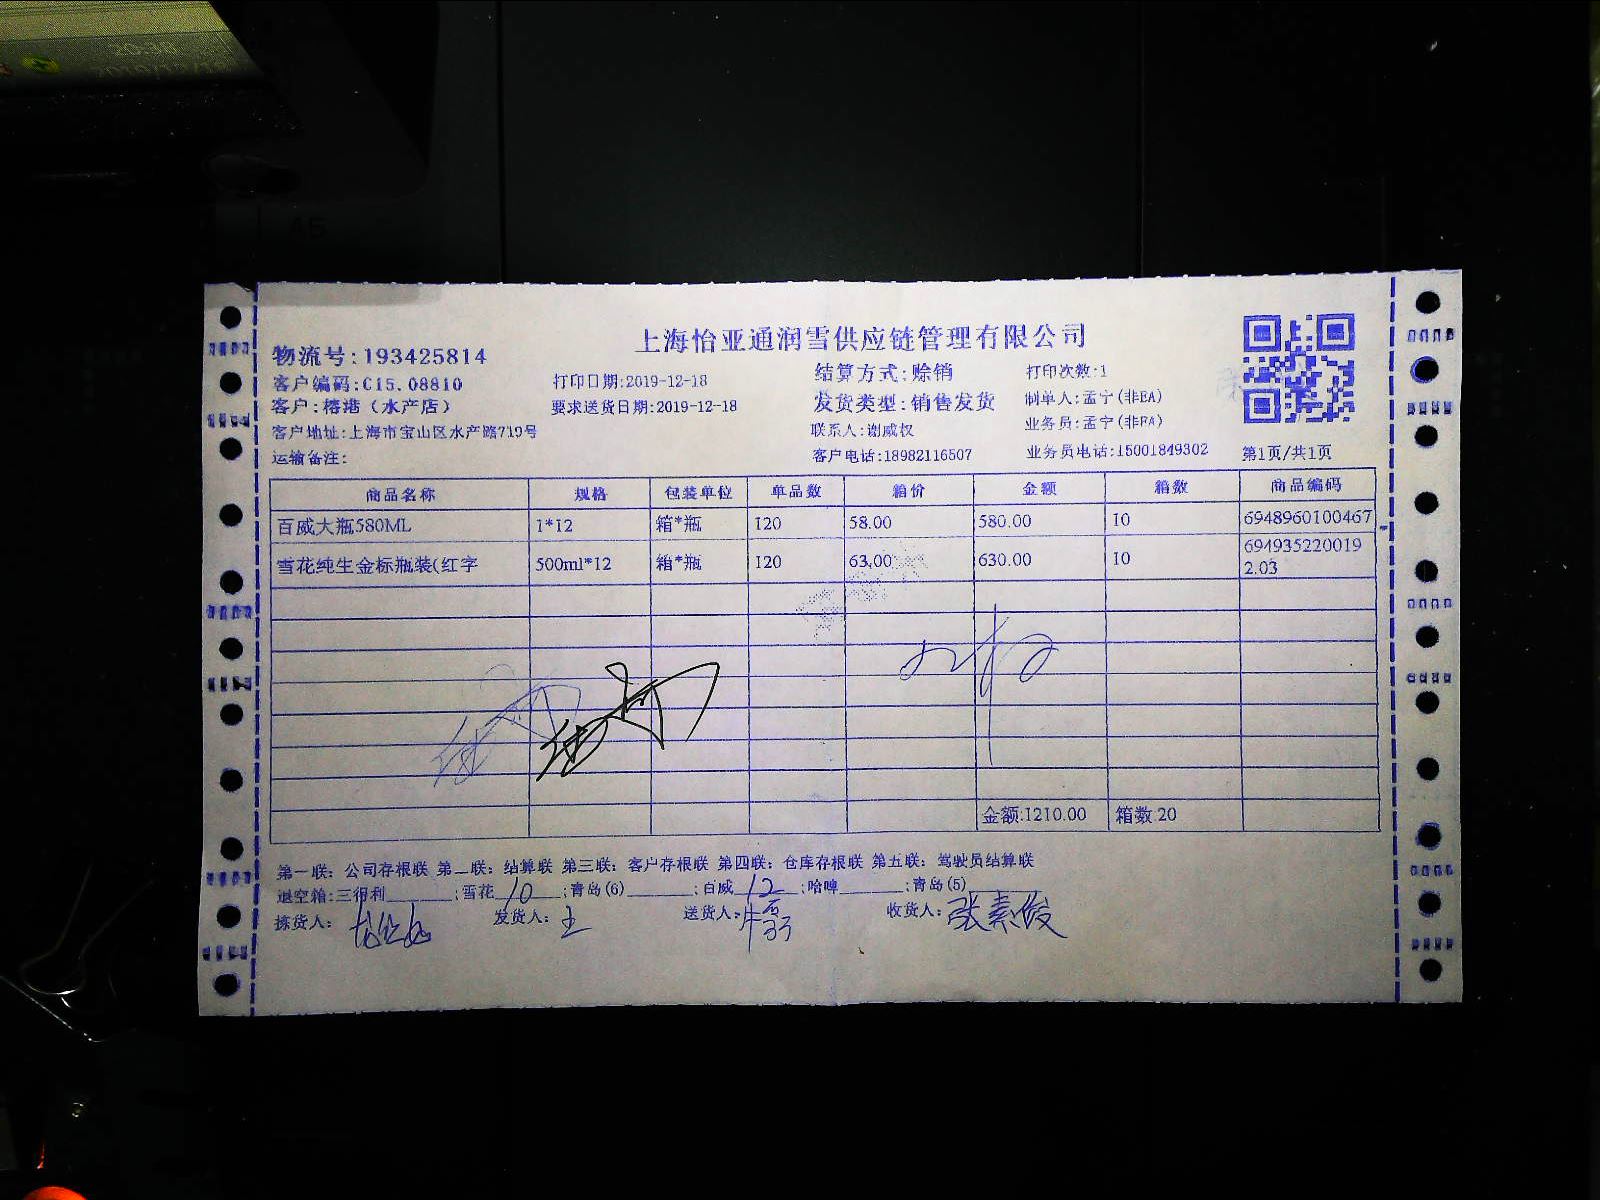 上海怡亚通润雪供应链管理有限公司
物流号:193425814
客户编码:C15.08810 打印日期:2019-12-18 结算方式:赊销 打印次数:1
客户:椿港（水产店） 要求送货日期:2019-12-18 发货类型:销售发货 制单人:孟宁(非EA)
客户地址:上海市宝山区水产路719号 联系人:谢威权 业务员:孟宁(非EA)
运输备注: 客户电话:18982116507 业务员电话:15001849302 第1页/共1页
商品名称 规格 包装单位 单品数 箱价 金额 箱数 商品编码
百威大瓶580ML 1*12 箱*瓶 120 58.00 580.00 10 6948960100467
雪花纯生金标瓶装(红字 500ml*12 箱*瓶 120 63.00 630.00 10 694935220019
2.03
金额:1210.00 箱数:20
第一联: 公司存根联 第二联: 结算联 第三联: 客户存根联 第四联: 仓库存根联 第五联: 驾驶员结算联
退空箱:三得利______;雪花 10 ;青岛(6)______;百威 12 ;哈啤______;青岛(5)______
拣货人: 发货人: 王 送货人: 牛磊 收货人: 张素俊